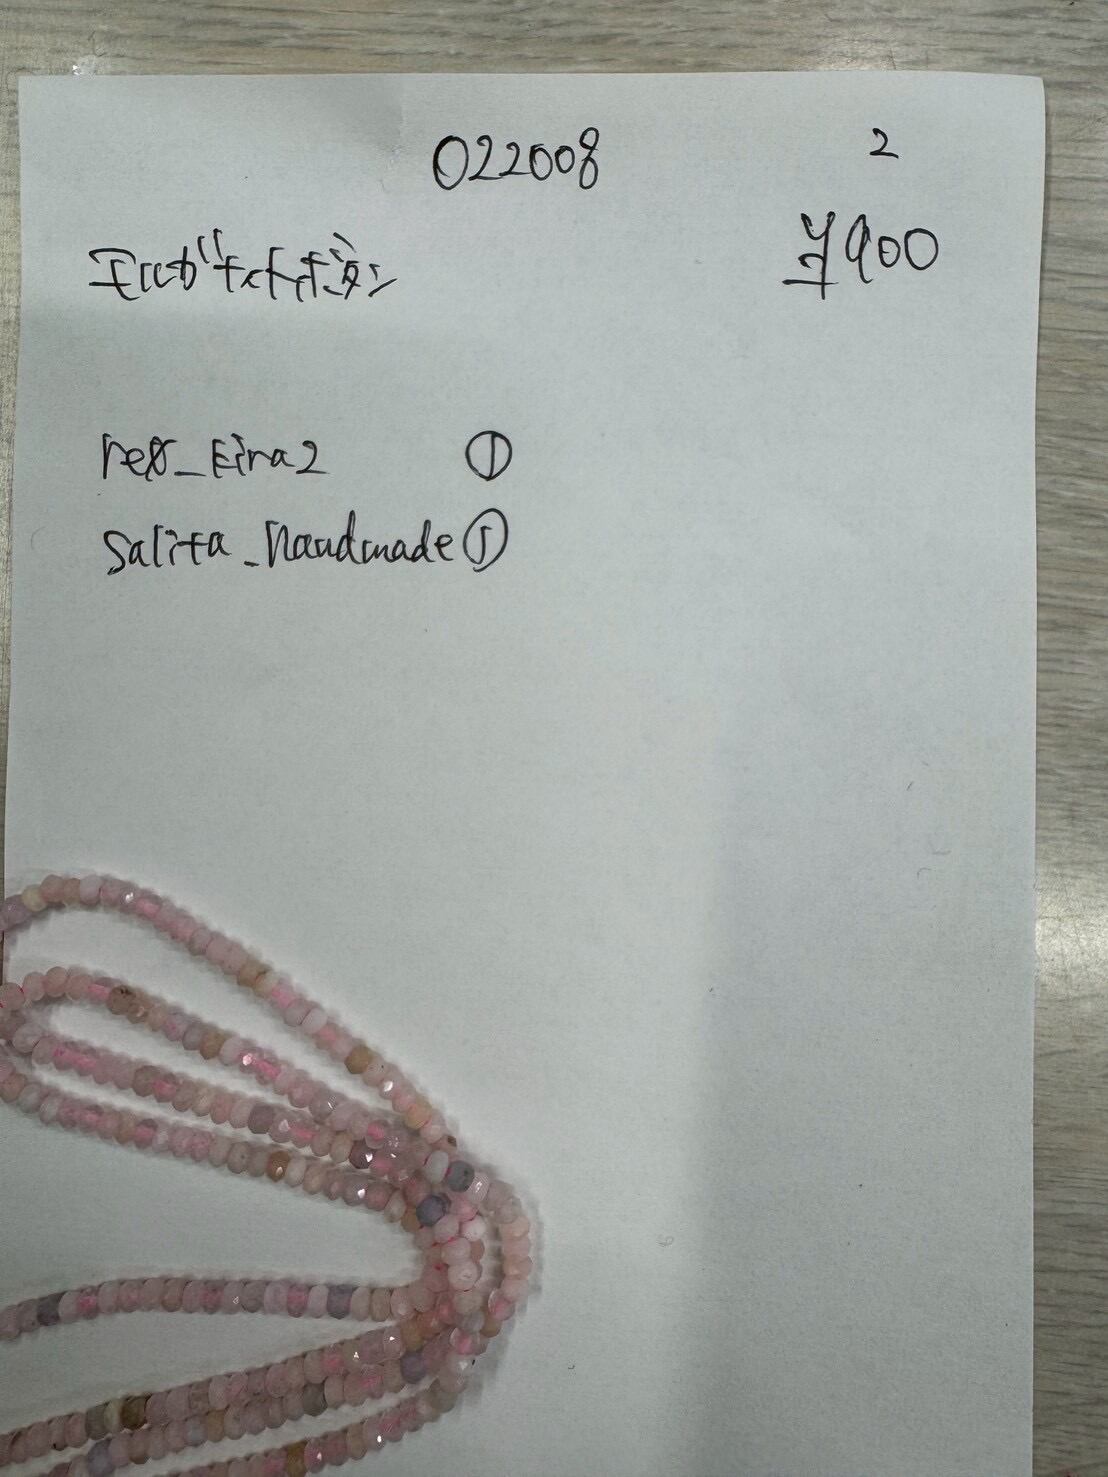 022008 2
モルガナイトボタン ¥900
res_Eira2 ①
Salita_handmade ①